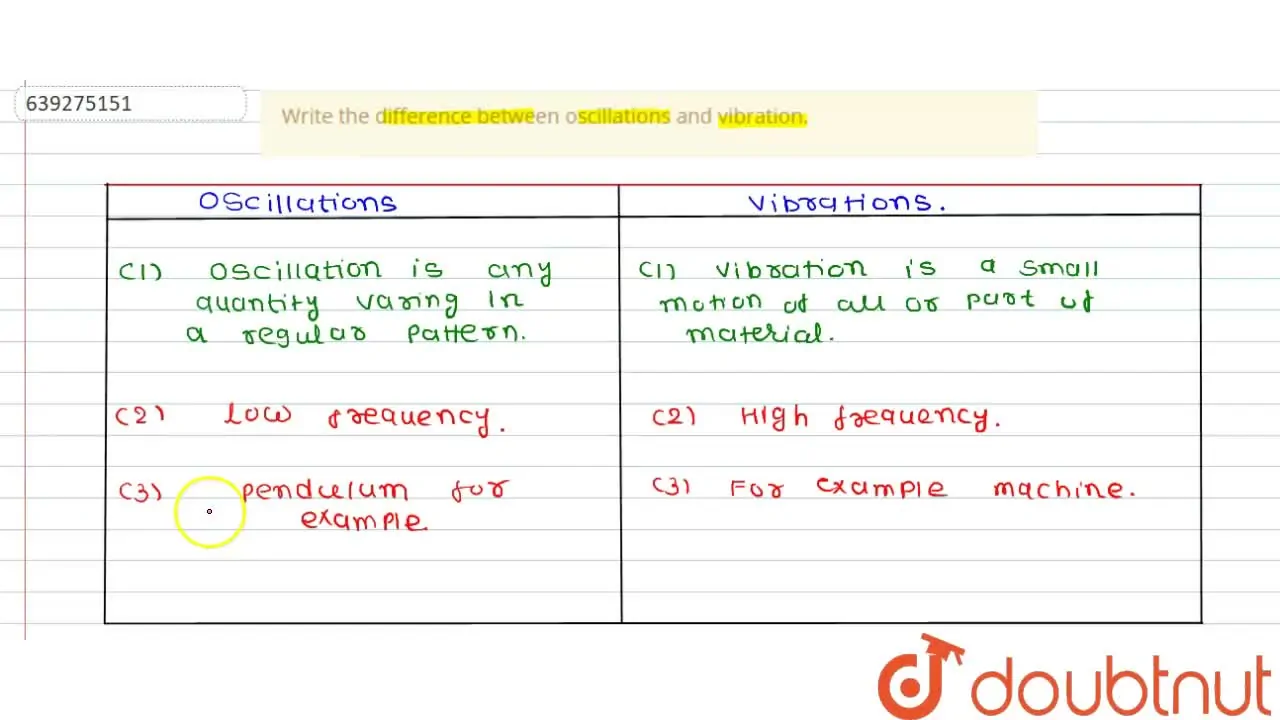 639275151
Write the difference between oscillations and vibration.
Oscillations
Vibrations.
(1) Oscillation is any
quantity varing in
a regular pattern.
(1) Vibration is a small
motion of all or part of
material.
(2) Low frequency.
(2) High frequency.
(3) pendulum for
example
(3) For example machine.
doubtnut